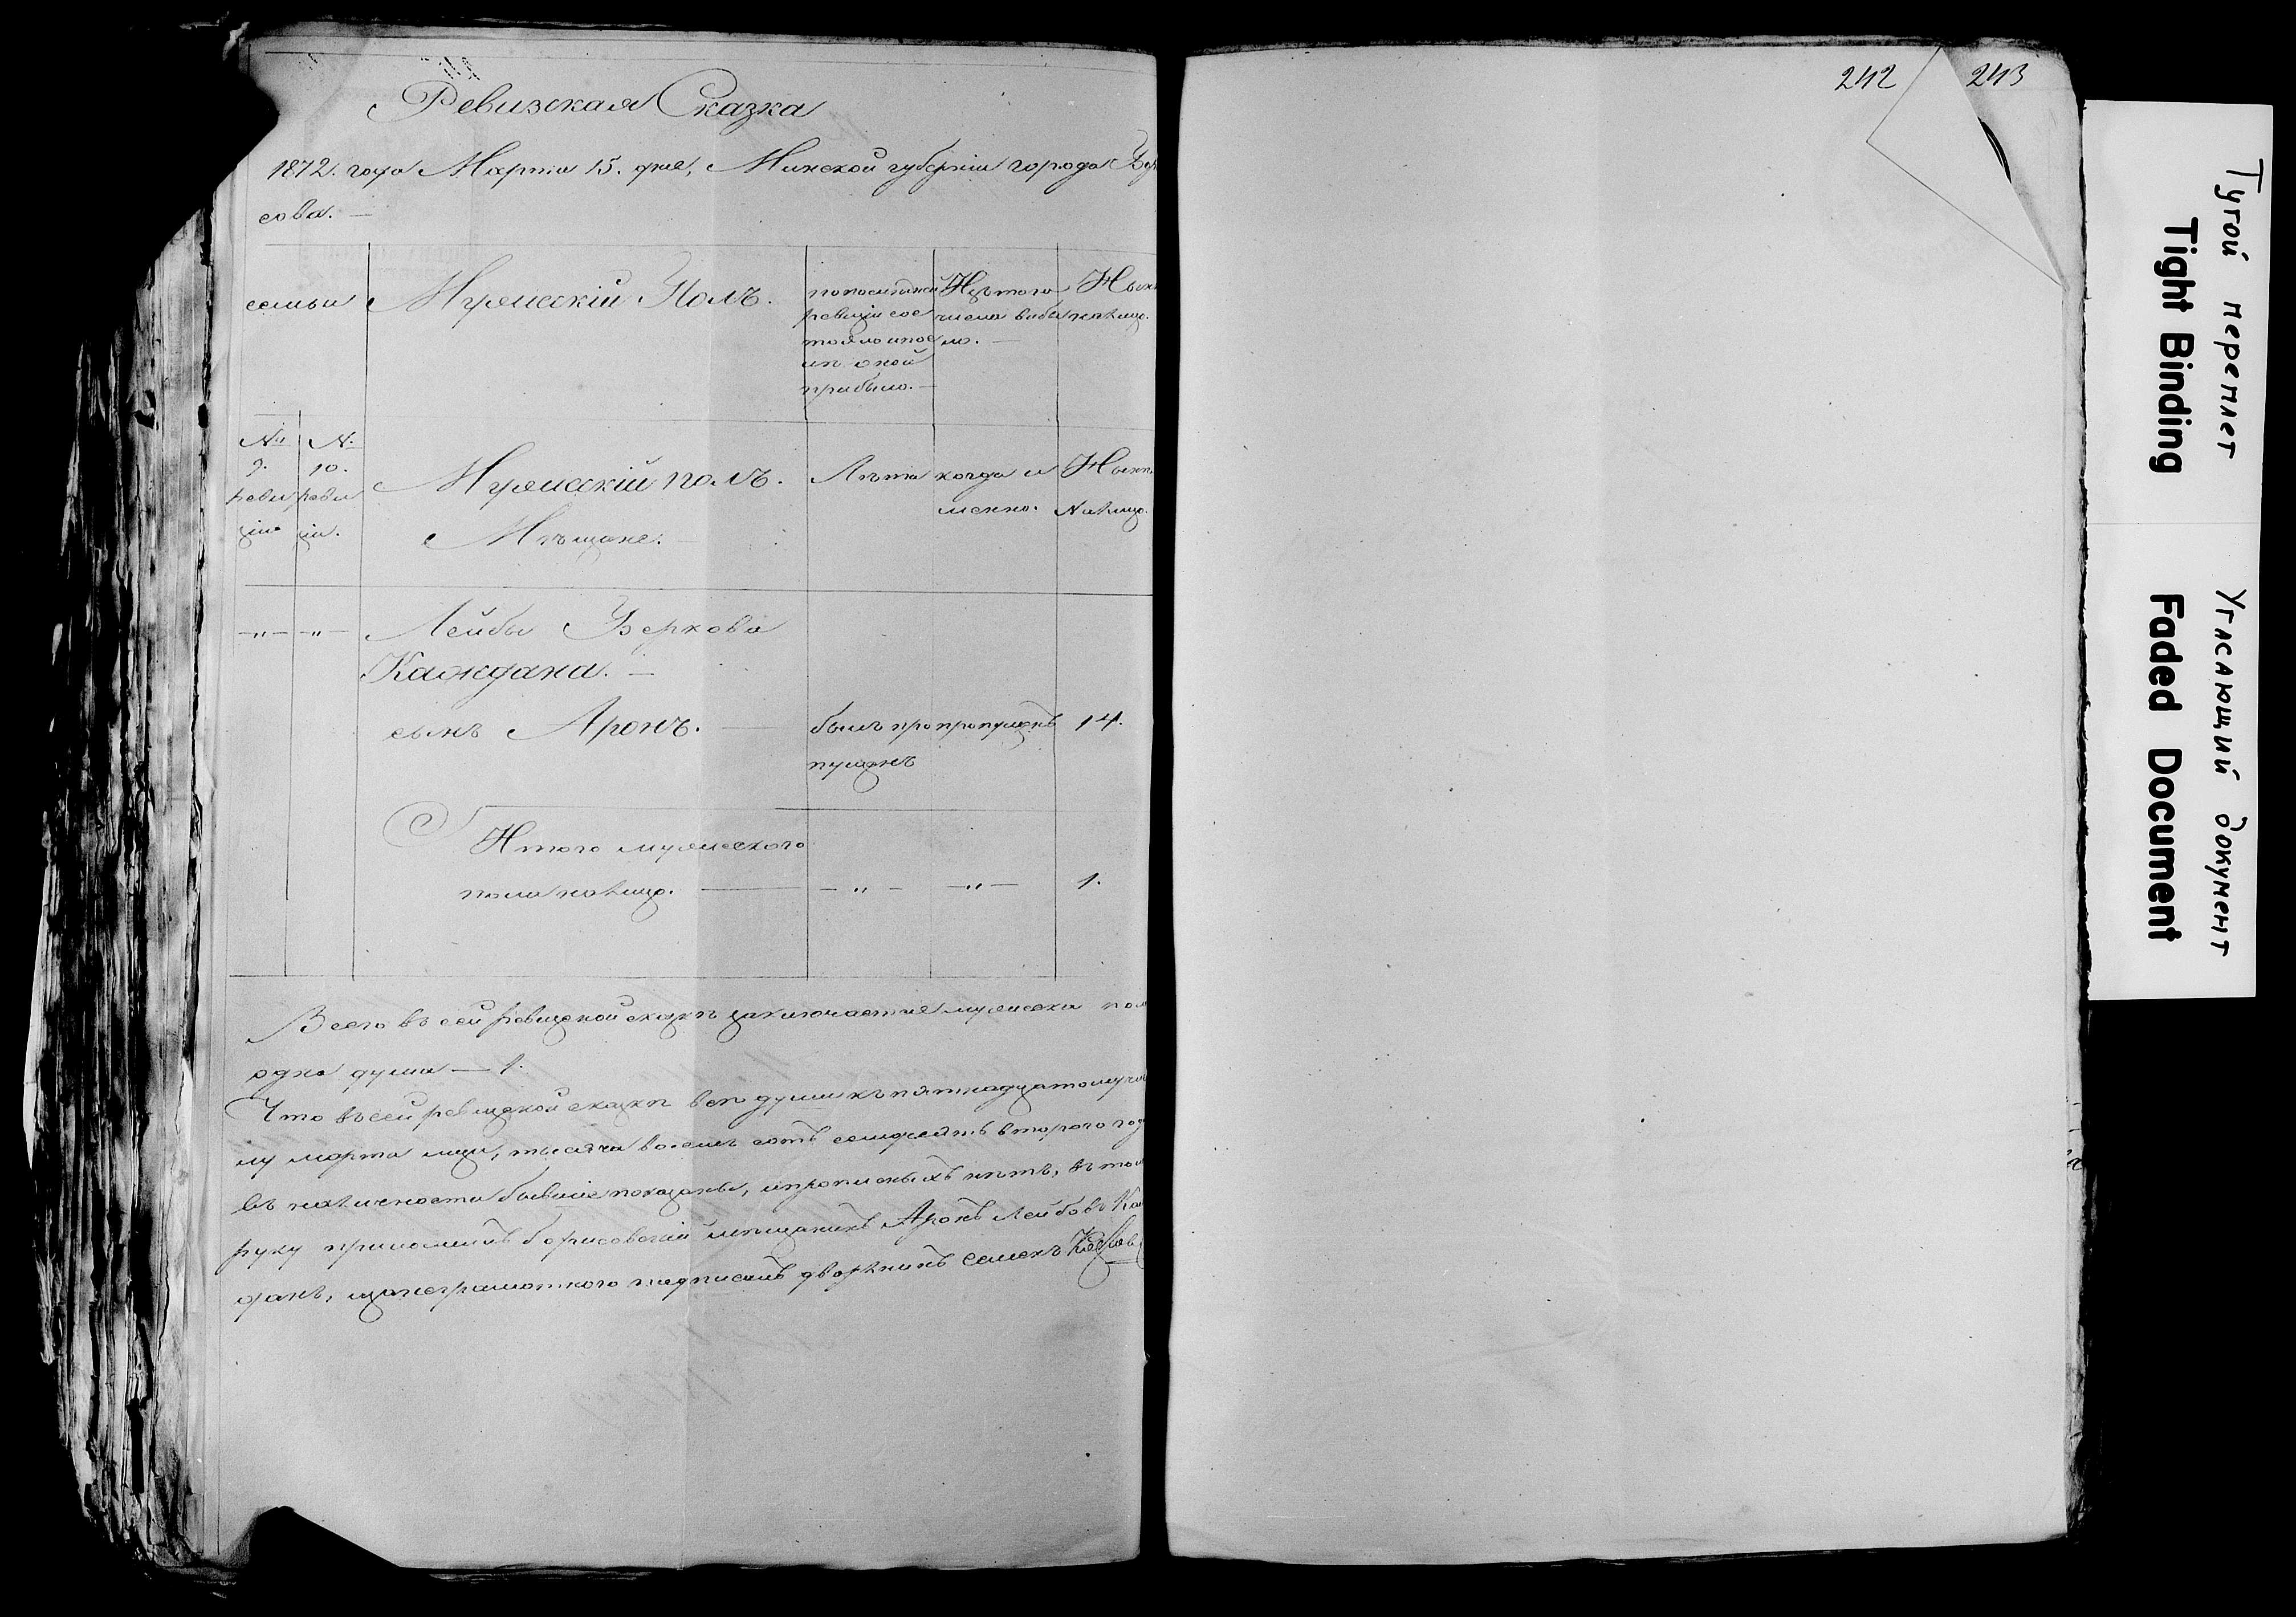 242
243
Ревизская Сказка
1872. года Марта 15. дня, Минской губерніи города Бори
сова. —
семьи
Мужескій Полъ.
по последней
ревизіи сос
тояло и пос
ли оной
прибыло. —
Изъ того
числа выбы
ло. —
Нын
налицо.
№
9.
реви
зіи
№
10.
реви
зіи.
Мужескій полъ.
Мѣщане. —
Лѣта
когда и
менно.
Нынѣ
налицо.
— " — — " —
Лейбы Беркова
Каждана. —
сынъ Аронъ. —
былъ про
пущенъ
пропущенъ
14.
Итого мужеского
пола налицо. — — " — — " — 1.
Всего въ сей ревизской сказкѣ заключается мужеска пол
одна душа — 1.
Что въ сей ревизской сказкѣ всѣ души къ пятнадцатому чи
му марта мца, тысяча восемь сотъ семдесятъ втораго год
въ наличности бывшіе показаны, и прописныхъ нѣтъ, въ том
руку приложилъ борисовскій мѣщанинъ Аронъ Лейбовъ Ка
данъ, за неграмотного подписалъ дворянинъ Семенъ
Тугой переплет
Tight Binding
Угасающий документ
Faded Document